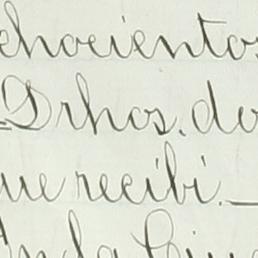 chocientos
Drhos. do
ue recibí. —